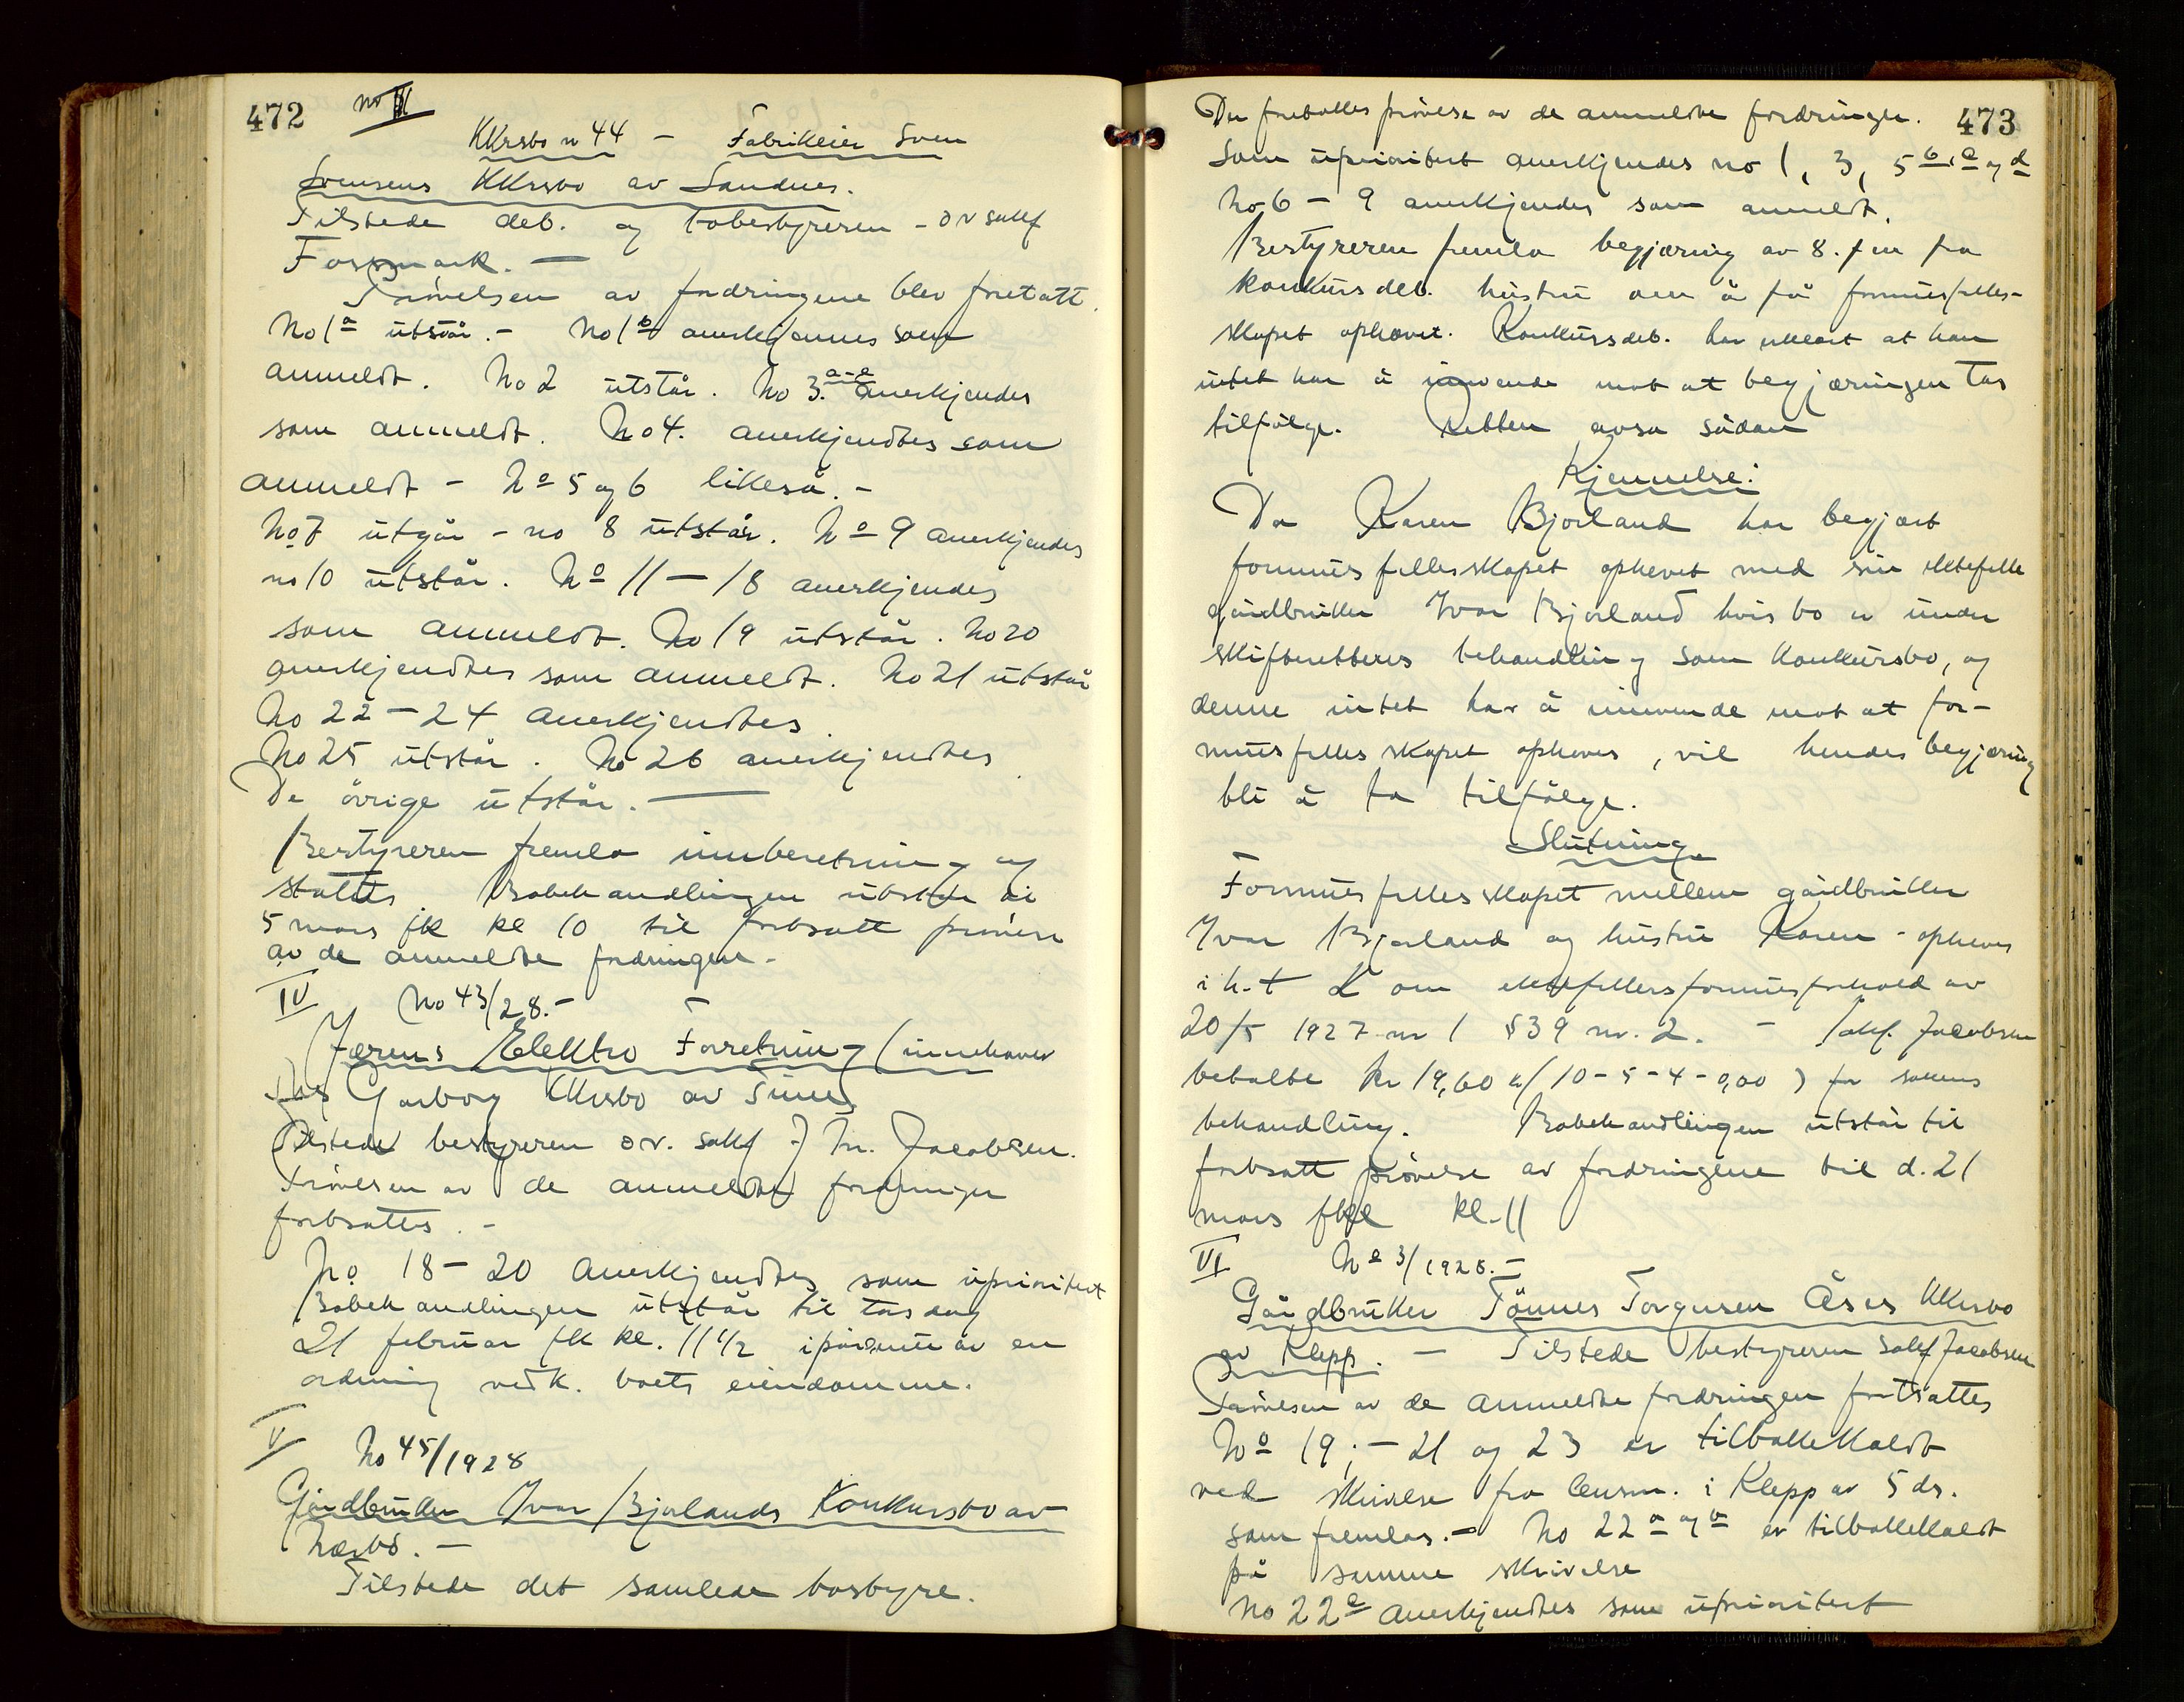 472
no III
KKrsbo n 44 - Fabrikeier Sven
Svensens KKrsbo av Sandnes.
Tilstede deb. og bobestyreren - o r sakf
Fossmark. -
Prøvelsen av fordringene blev foretatt.
No 1 a utstår. - No 1 b anerkjennes som
anmeldt. No 2 utstår. No 3. a-e anerkjendes
som anmeldt. No 4. anerkjendtes som
anmeldt - No 5 og 6 likeså. -
No 7 utgår - no 8 utstår. No 9 anerkjendes
no 10 utstår. No 11 - 18 anerkjendes
som anmeldt. No 19 utstår. No 20
anerkjendtes som anmeldt. No 21 utstår
No 22 - 24 anerkjendtes.
No 25 utstår. No 26 anerkjendtes.
De øvrige utstår. -
Bestyreren fremla innberetning og
status. Bobehandlingen utstår til
5 mars fk kl 10 til fortsatt prøvelse
av de anmeldte fordringer. -
IV No 43/28. -
Jærens Elektro Forretning (innehaver
Garborg KKrsbo av Time)
Tilstede bestyreren o.r. sakf J Tn. Jacobsen.
Prøvelsen av de anmeldte fordringer
fortsattes. -
No 18 - 20 anerkjendtes som uprioritert
Bobehandlingen utstår til torsdag
21 februar fk kl. 11 1/2 i påvente av en
ordning vedk. boets eiendomme.
V No 45/1928
Gårdbruker Ivar Bjorlands Konkursbo av
Nærbø. -
Tilstede det samlede bostyre.
473
Der foretokes prøvelse av de anmeldte fordringer.
Som uprioritert anerkjendes no 1, 3, 5 b, c og d
No 6 - 9 anerkjendes som anmeldt.
Bestyreren fremla begjæring av 8. f m fra
konkurs deb. hustru om å få formuesfelles-
skapet ophævet. Konkursdeb. har erklært at han
intet har å innvende mot at begjæringen tas
tilfølge. Retten avsa sådan
Kjennelse:
Da Karen Bjorland har begjært
formuesfellesskapet ophevet med sin ektefelle
gårdbruker Ivar Bjorland hvis bo er under
skifterettens behandling som konkursbo, og
denne intet har å innvende mot at for-
muesfellesskapet opheves, vil hendes begjæring
bli å ta tilfølge.
Slutning
Formuesfellesskapet mellem gårdbruker
Ivar Bjorland og hustru Karen - opheves
i h.t L om ektefellers formuesforhold av
20/5 1927 nr 1 § 39 nr. 2. - Sakf. Jacobsen
betalte kr 19,60 (10 - 5 - 4 - 0,60) for sakens
behandling. Bobehandlingen utstår til
fortsatt prøvelse av fordringene til d. 21
mars kl. 11
VI No 3/1928. -
Gårdbruker Tönnes Torgersen Åses KKrsbo
av Klepp. - Tilstede bestyreren sakf Jacobsen
Prøvelsen av de anmeldte fordringer fortsattes
No 19, - 21 og 23 er tilbakekaldt
ved skrivelse fra lensm. i Klepp av 5 ds.
som fremlas. - No 22 a og b er tilbakekaldt
på samme skrivelse
No 22 c anerkjendtes som uprioritert